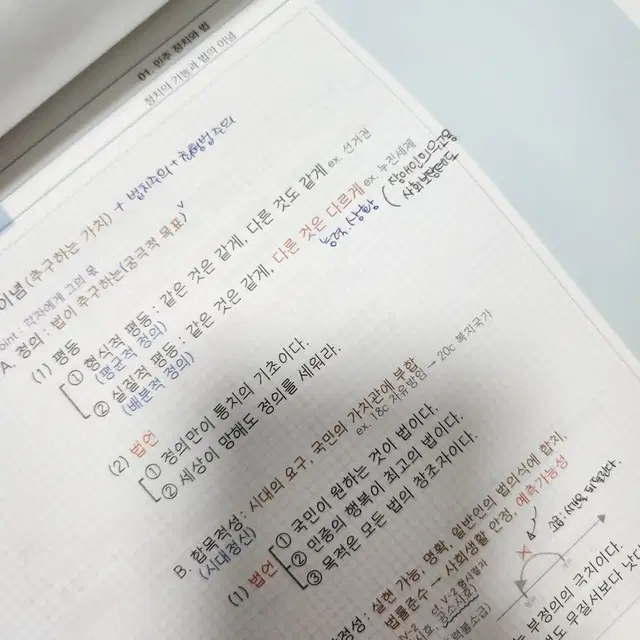 01 민주 정치와 법
정치의 기능과 법의 이념
+ 법치주의 +
이념 (추구하는 가치)
point : 각자에게 그의 몫
A. 정의 : 법이 추구하는 (궁극적 목표)
(1) 평등
① 형식적 평등 : 같은 것은 같게, 다른 것도 같게 ex. 선거권
(평균적 정의)
② 실질적 평등 : 같은 것은 같게, 다른 것은 다르게 ex. 누진세제
(배분적 정의)
능력, 상황
(장애인의무고용
사회보험제도
(2) 법언
① 정의만이 통치의 기초이다.
② 세상이 망해도 정의를 세워라.
B. 합목적성 : 시대의 요구, 국민의 가치관에 부합
(시대정신)
ex. 18c 자유방임 → 20c 복지국가
(1) 법언
① 국민이 원하는 것이 법이다.
② 민중의 행복이 최고의 법이다.
③ 목적은 모든 법의 창조자이다.
안정성 : 실현 가능, 명확, 일반인의 법의식에 합치,
법률준수 → 사회생활 안정, 예측가능성
는 부정의의 극치이다.
도 무질서보다 낫